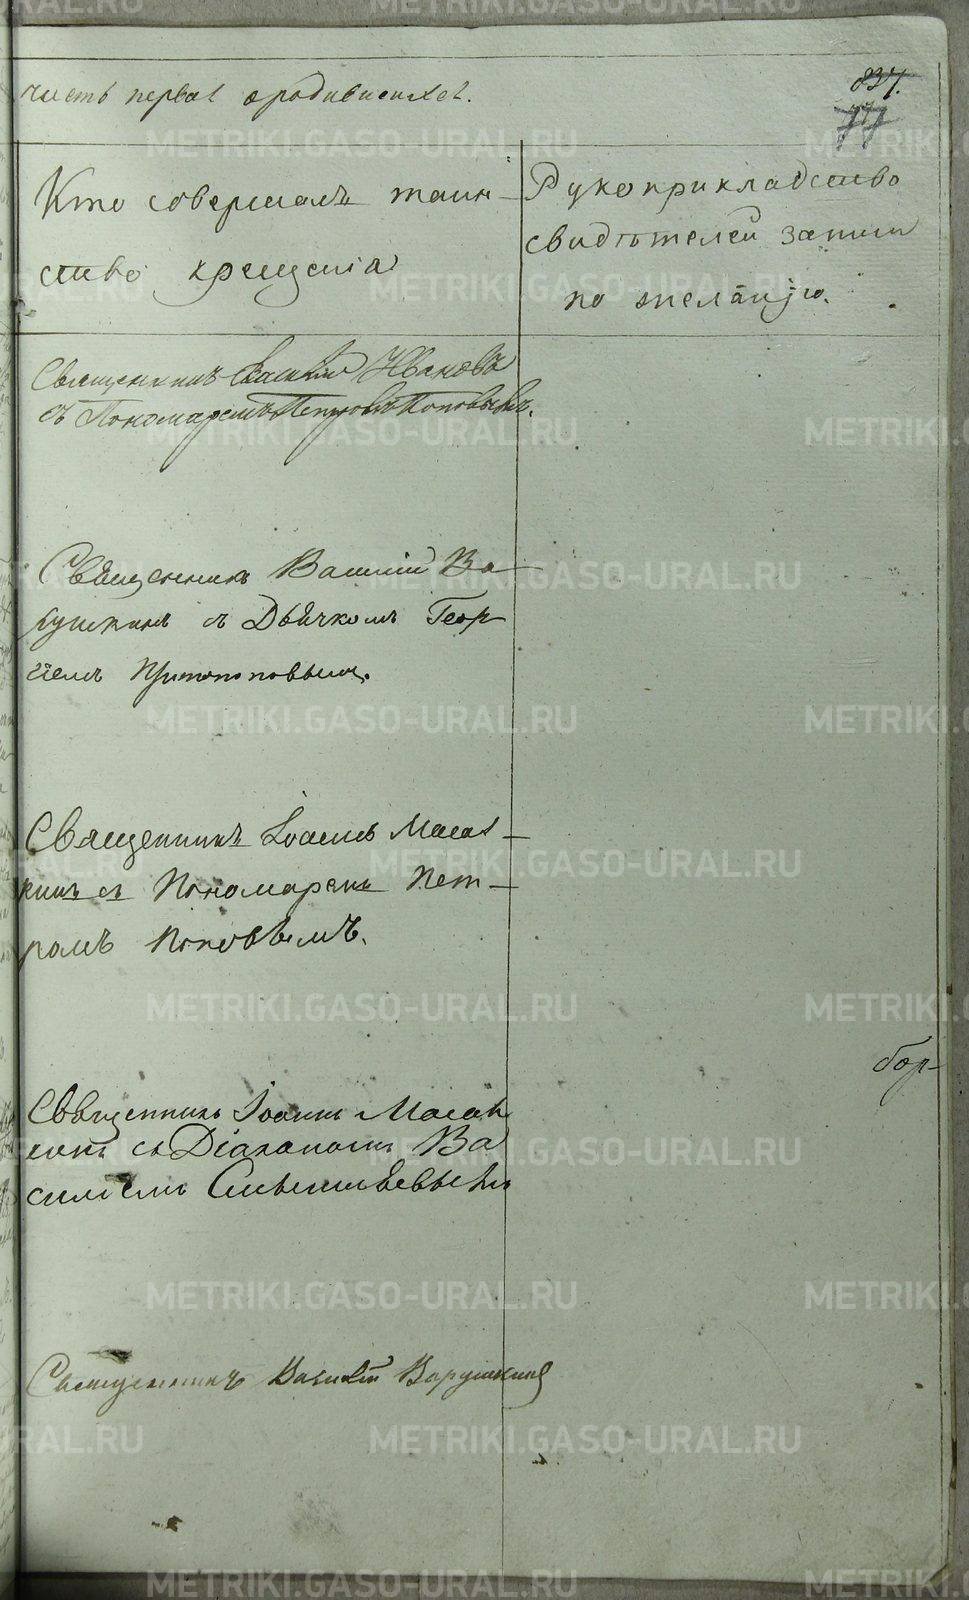 часть первая о родившихся.
837.
77
Кто совершалъ таин-
ство крещенія
Рукоприкладство
свидѣтелей записи
по желанію.
Священникъ Василій Ивановъ
съ Пономаремъ Петромъ Поповымъ.
Священникъ Василій Ва-
рушкинъ съ Дьячкомъ Геор-
гіемъ Протопоповымъ.
Священникъ Іоаннъ
съ Пономаремъ Пет-
ромъ Поповымъ.
Священникъ Іоаннъ
съ Діакономъ Ва
силіемъ
Священникъ Василій Варушкинъ
бор-
METRIKI.GASO-URAL.RU